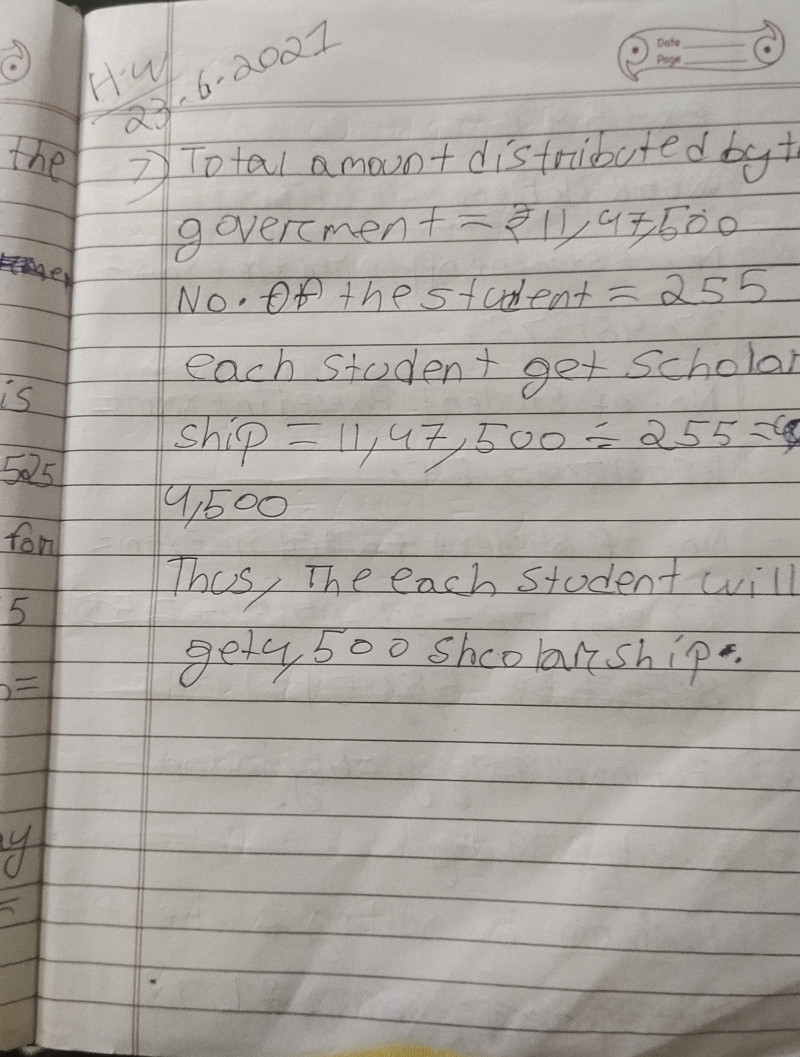 H.W
23.6.2021
Date
Page
the
7) Total amount distributed by
goverment = ₹11,47,500
No. of the student = 255
each student get scholar
is
ship = 11,47,500 ÷ 255 =
525
4,500
for
Thus, The each student will
5
get 4,500 shcolarship.
=
y